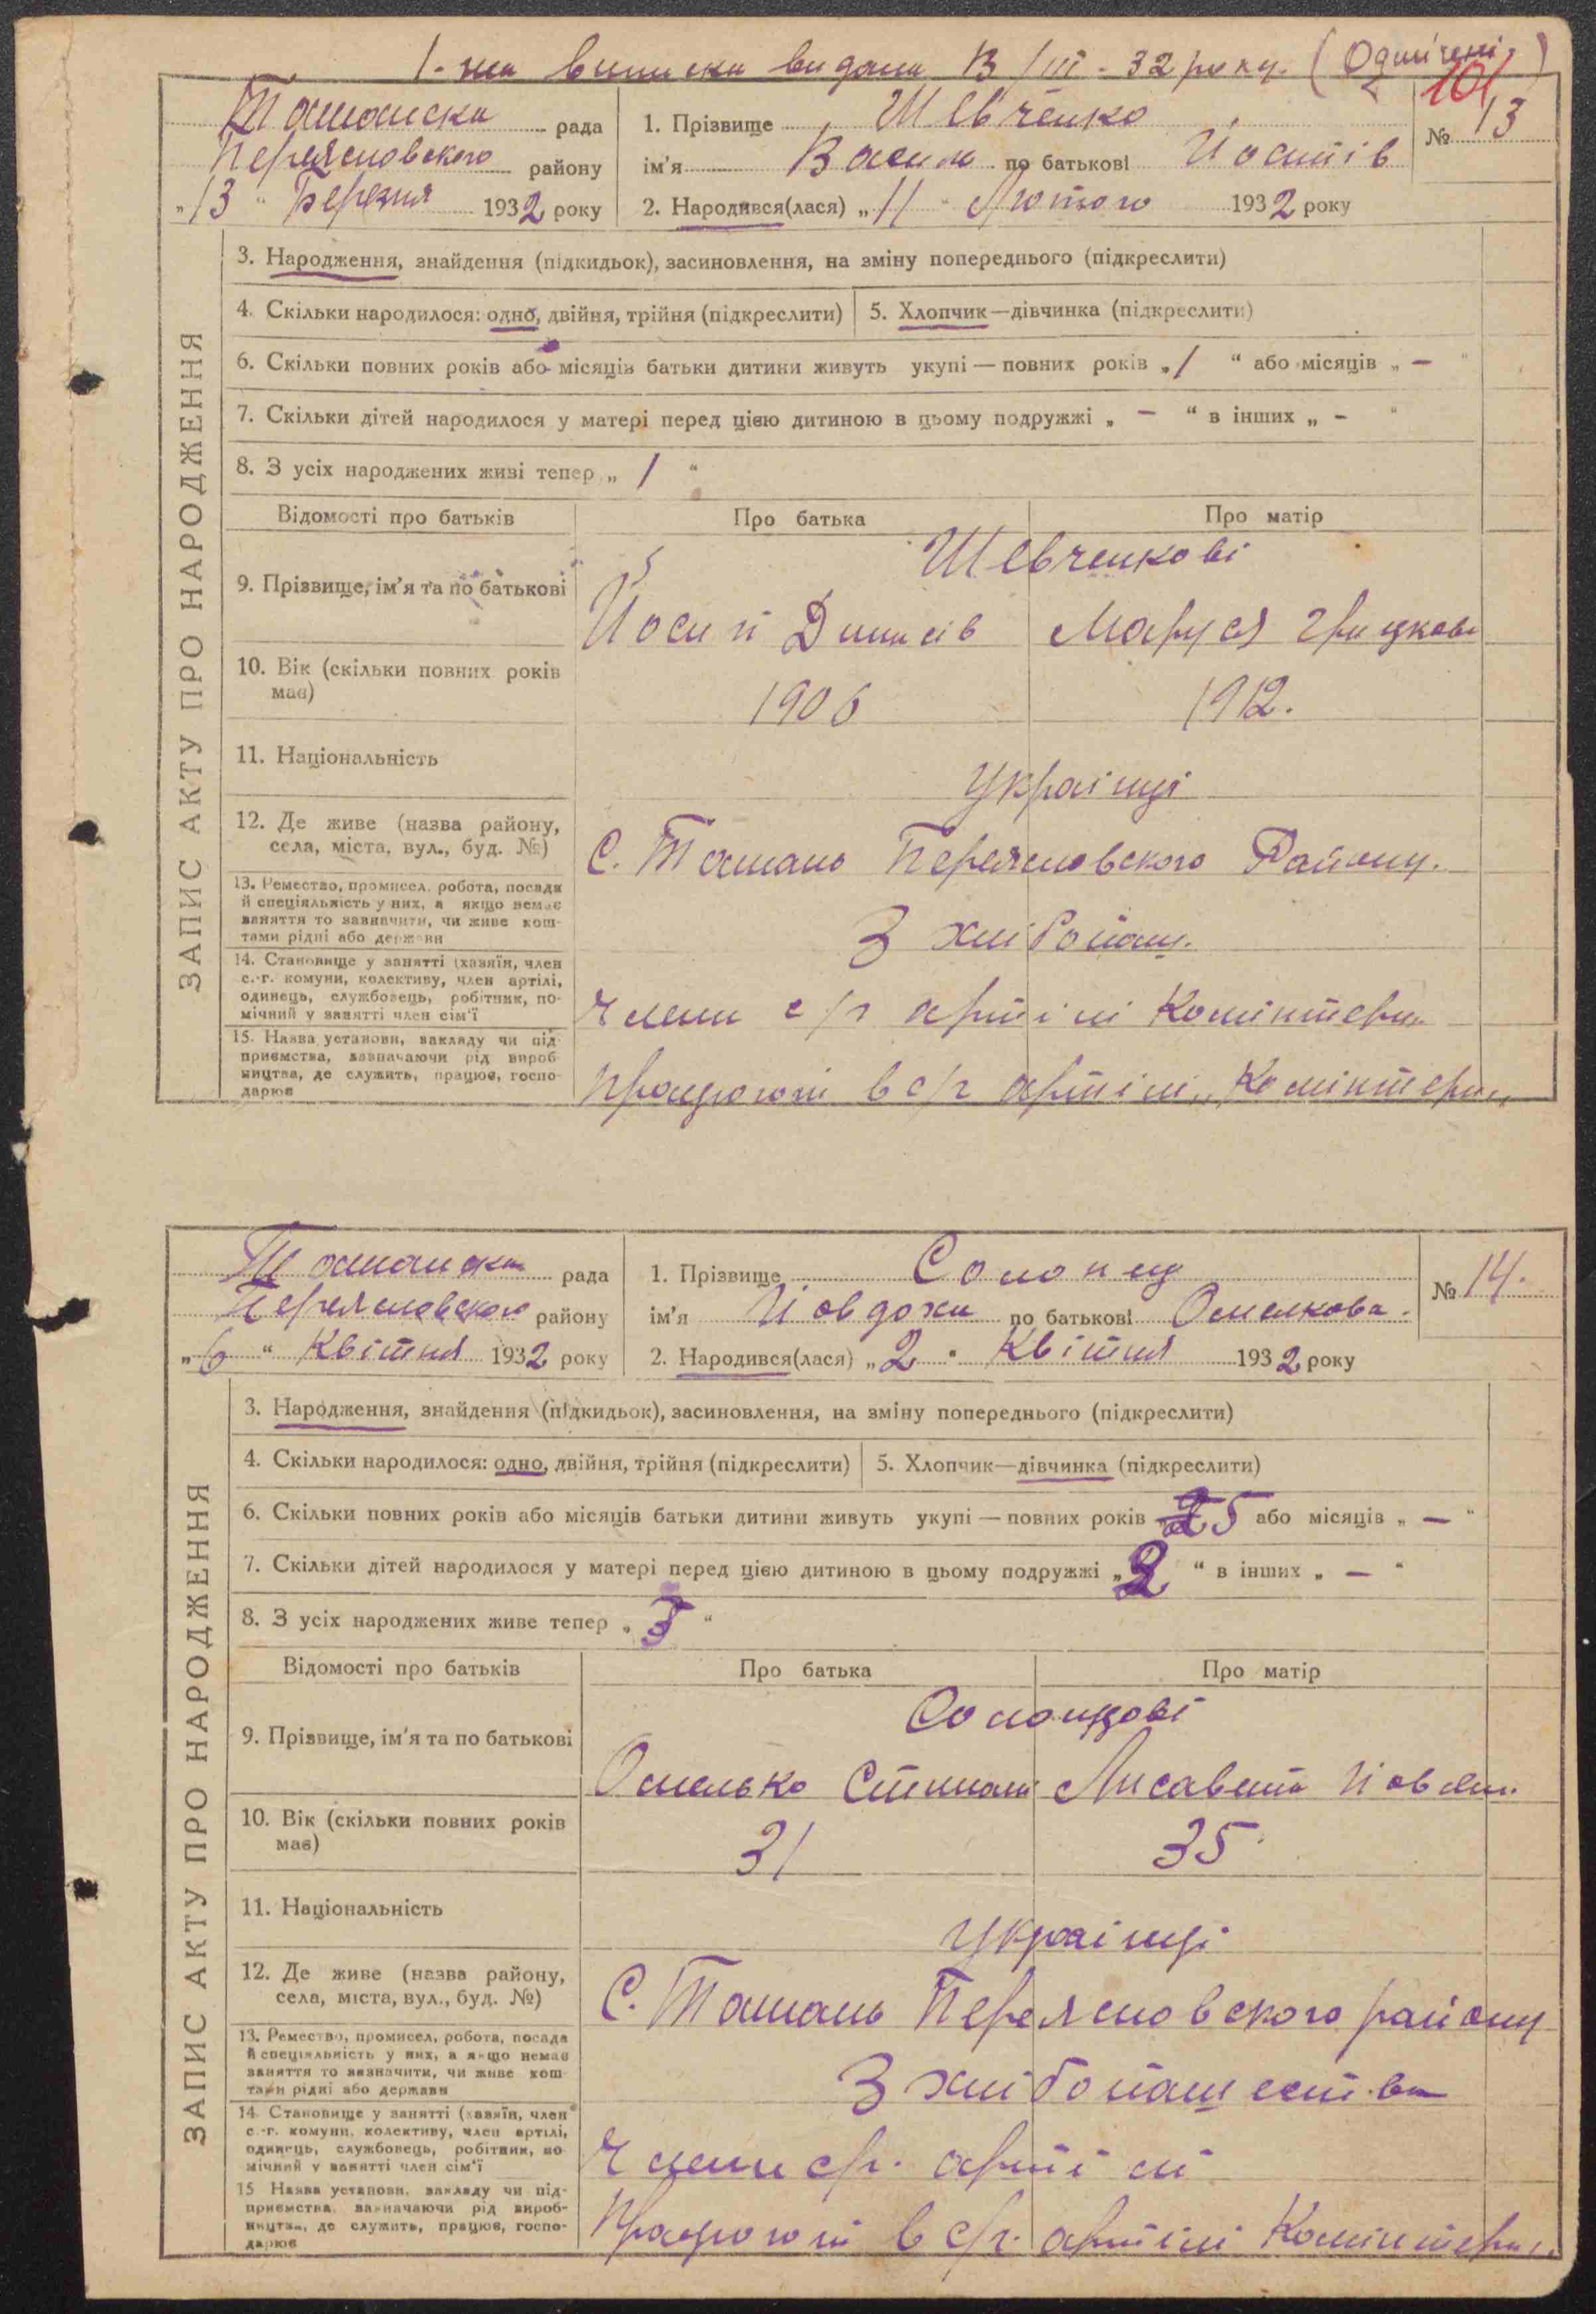 1-ша виписка видана 13/III - 32 року. (Одмічені)
101
Ташанська рада
Переяславського району
„13“ Березня 1932 року
1. Прізвище Шевченко
ім'я Василь по батькові Йосипів
2. Народився(лася) „11“ Лютого 1932 року
№ 13
ЗАПИС АКТУ ПРО НАРОДЖЕННЯ
3. Народження, знайдення (підкидьок), засиновлення, на зміну попереднього (підкреслити)
4. Скільки народилося: одно, двійня, трійня (підкреслити)
5. Хлопчик—дівчинка (підкреслити)
6. Скільки повних років або місяців батьки дитини живуть укупі — повних років „1“ або місяців „—“
7. Скільки дітей народилося у матері перед цією дитиною в цьому подружжі „—“ в інших „-“
8. З усіх народжених живі тепер „1“
Відомості про батьків Про батька Про матір
Шевченкові
9. Прізвище, ім'я та по батькові
Йосип Динисів Маруся Грицкова
10. Вік (скільки повних років
має)
1906 1912.
11. Національність
Українці
12. Де живе (назва району,
села, міста, вул., буд. №)
С. Ташань Переяславского Району.
13. Ремество, промисел, робота, посада
й спеціяльність у них, а якщо немає
заняття то зазначити, чи живе кош-
тами рідні або держави
З хлібопаш.
14. Становище у занятті (хазяїн, член
с.-г. комуни, колективу, член артілі,
одинець, службовець, робітник, по-
мічний у занятті член сім'ї
Члени с/г артілі Комінтерн
15. Назва установи, закладу чи під-
приємства, зазначаючи рід вироб-
ництва, де служить, працює, госпо-
дарює
Працюють в с/г артілі „Комінтерн„
Ташанська рада
Переяславского району
„6“ Квітня 1932 року
1. Прізвище Солонец
ім'я Йовдоха по батькові Омелкова.
2. Народився(лася) „2“ Квітня 1932 року
№ 14.
ЗАПИС АКТУ ПРО НАРОДЖЕННЯ
3. Народження, знайдення (підкидьок), засиновлення, на зміну попереднього (підкреслити)
4. Скільки народилося: одно, двійня, трійня (підкреслити)
5. Хлопчик—дівчинка (підкреслити)
6. Скільки повних років або місяців батьки дитини живуть укупі — повних років 5 або місяців „—“
7. Скільки дітей народилося у матері перед цією дитиною в цьому подружжі „2“ в інших „—“
8. З усіх народжених живе тепер „3“
Відомості про батьків Про батька Про матір
Солонцові
9. Прізвище, ім'я та по батькові
Омелько Степан Лисавета
10. Вік (скільки повних років
має)
31 35
11. Національність
Українці
12. Де живе (назва району,
села, міста, вул., буд. №)
С. Ташань Переяславского району
13. Ремество, промисел, робота, посада
й спеціяльність у них, а якщо немає
заняття то зазначити, чи живе кош
тами рідні або держави
З хлібопашества
14. Становище у занятті (хазяїн, член
с.-г. комуни, колективу, член артілі,
одинець, службовець, робітник, по-
мічний у занятті член сім'ї
Члени с/г. артілі
15 Назва установи, закладу чи під-
приємства, зазначаючи рід вироб-
ництва, де служить, працює, госпо-
дарює
Працюють в с/г. артілі Комінтерн„